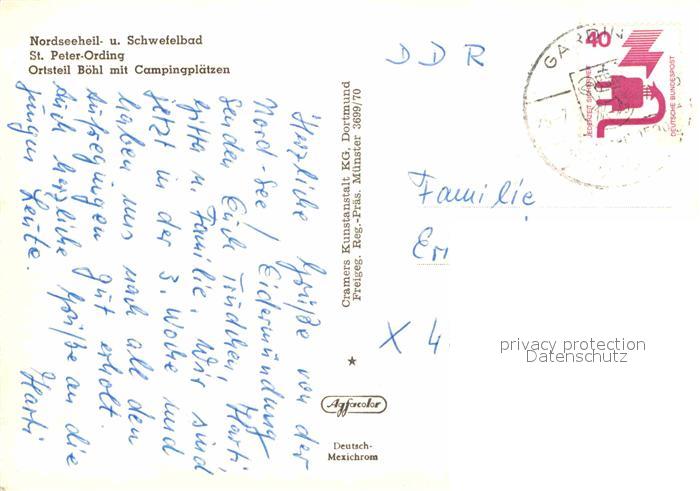 Nordseeheil- u. Schwefelbad
St. Peter-Ording
Ortsteil Böhl mit Campingplätzen
Herzliche Grüße von der
Nord-See / Eidermündung
senden Euch Trudchen, Harti,
Gitta u. Familie. Wir sind
jetzt in der 3. Woche und
haben uns nach all den
Aufregungen gut erholt.
Auch herzliche Grüße an die
jungen Leute. Harti
Cramers Kunstanstalt KG, Dortmund
Freigeg. Reg.-Präs. Münster 3699/70
Agfacolor
Deutsch-
Mexichrom
DDR
GARDING
40
JEDERZEIT SICHERHEIT
DEUTSCHE BUNDESPOST
Familie
X 4
privacy protection
Datenschutz